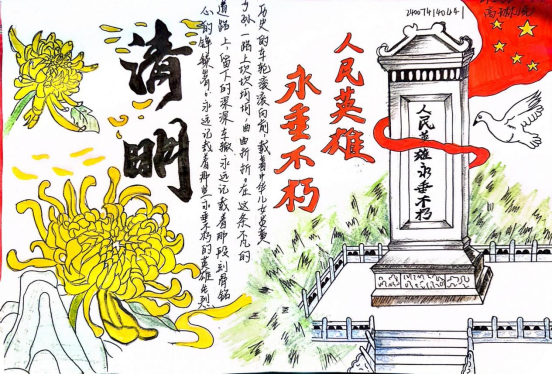 人民英雄
永垂不朽
人民英雄永垂不朽
清明
历史的车轮滚滚向前,载着中华儿女炎黄
子孙一路上坎坎坷坷,曲曲折折。在这条不凡的
道路上,留下的深深车辙永远记载着那段刻骨铭
永远记载着那些永垂不朽的英雄先烈